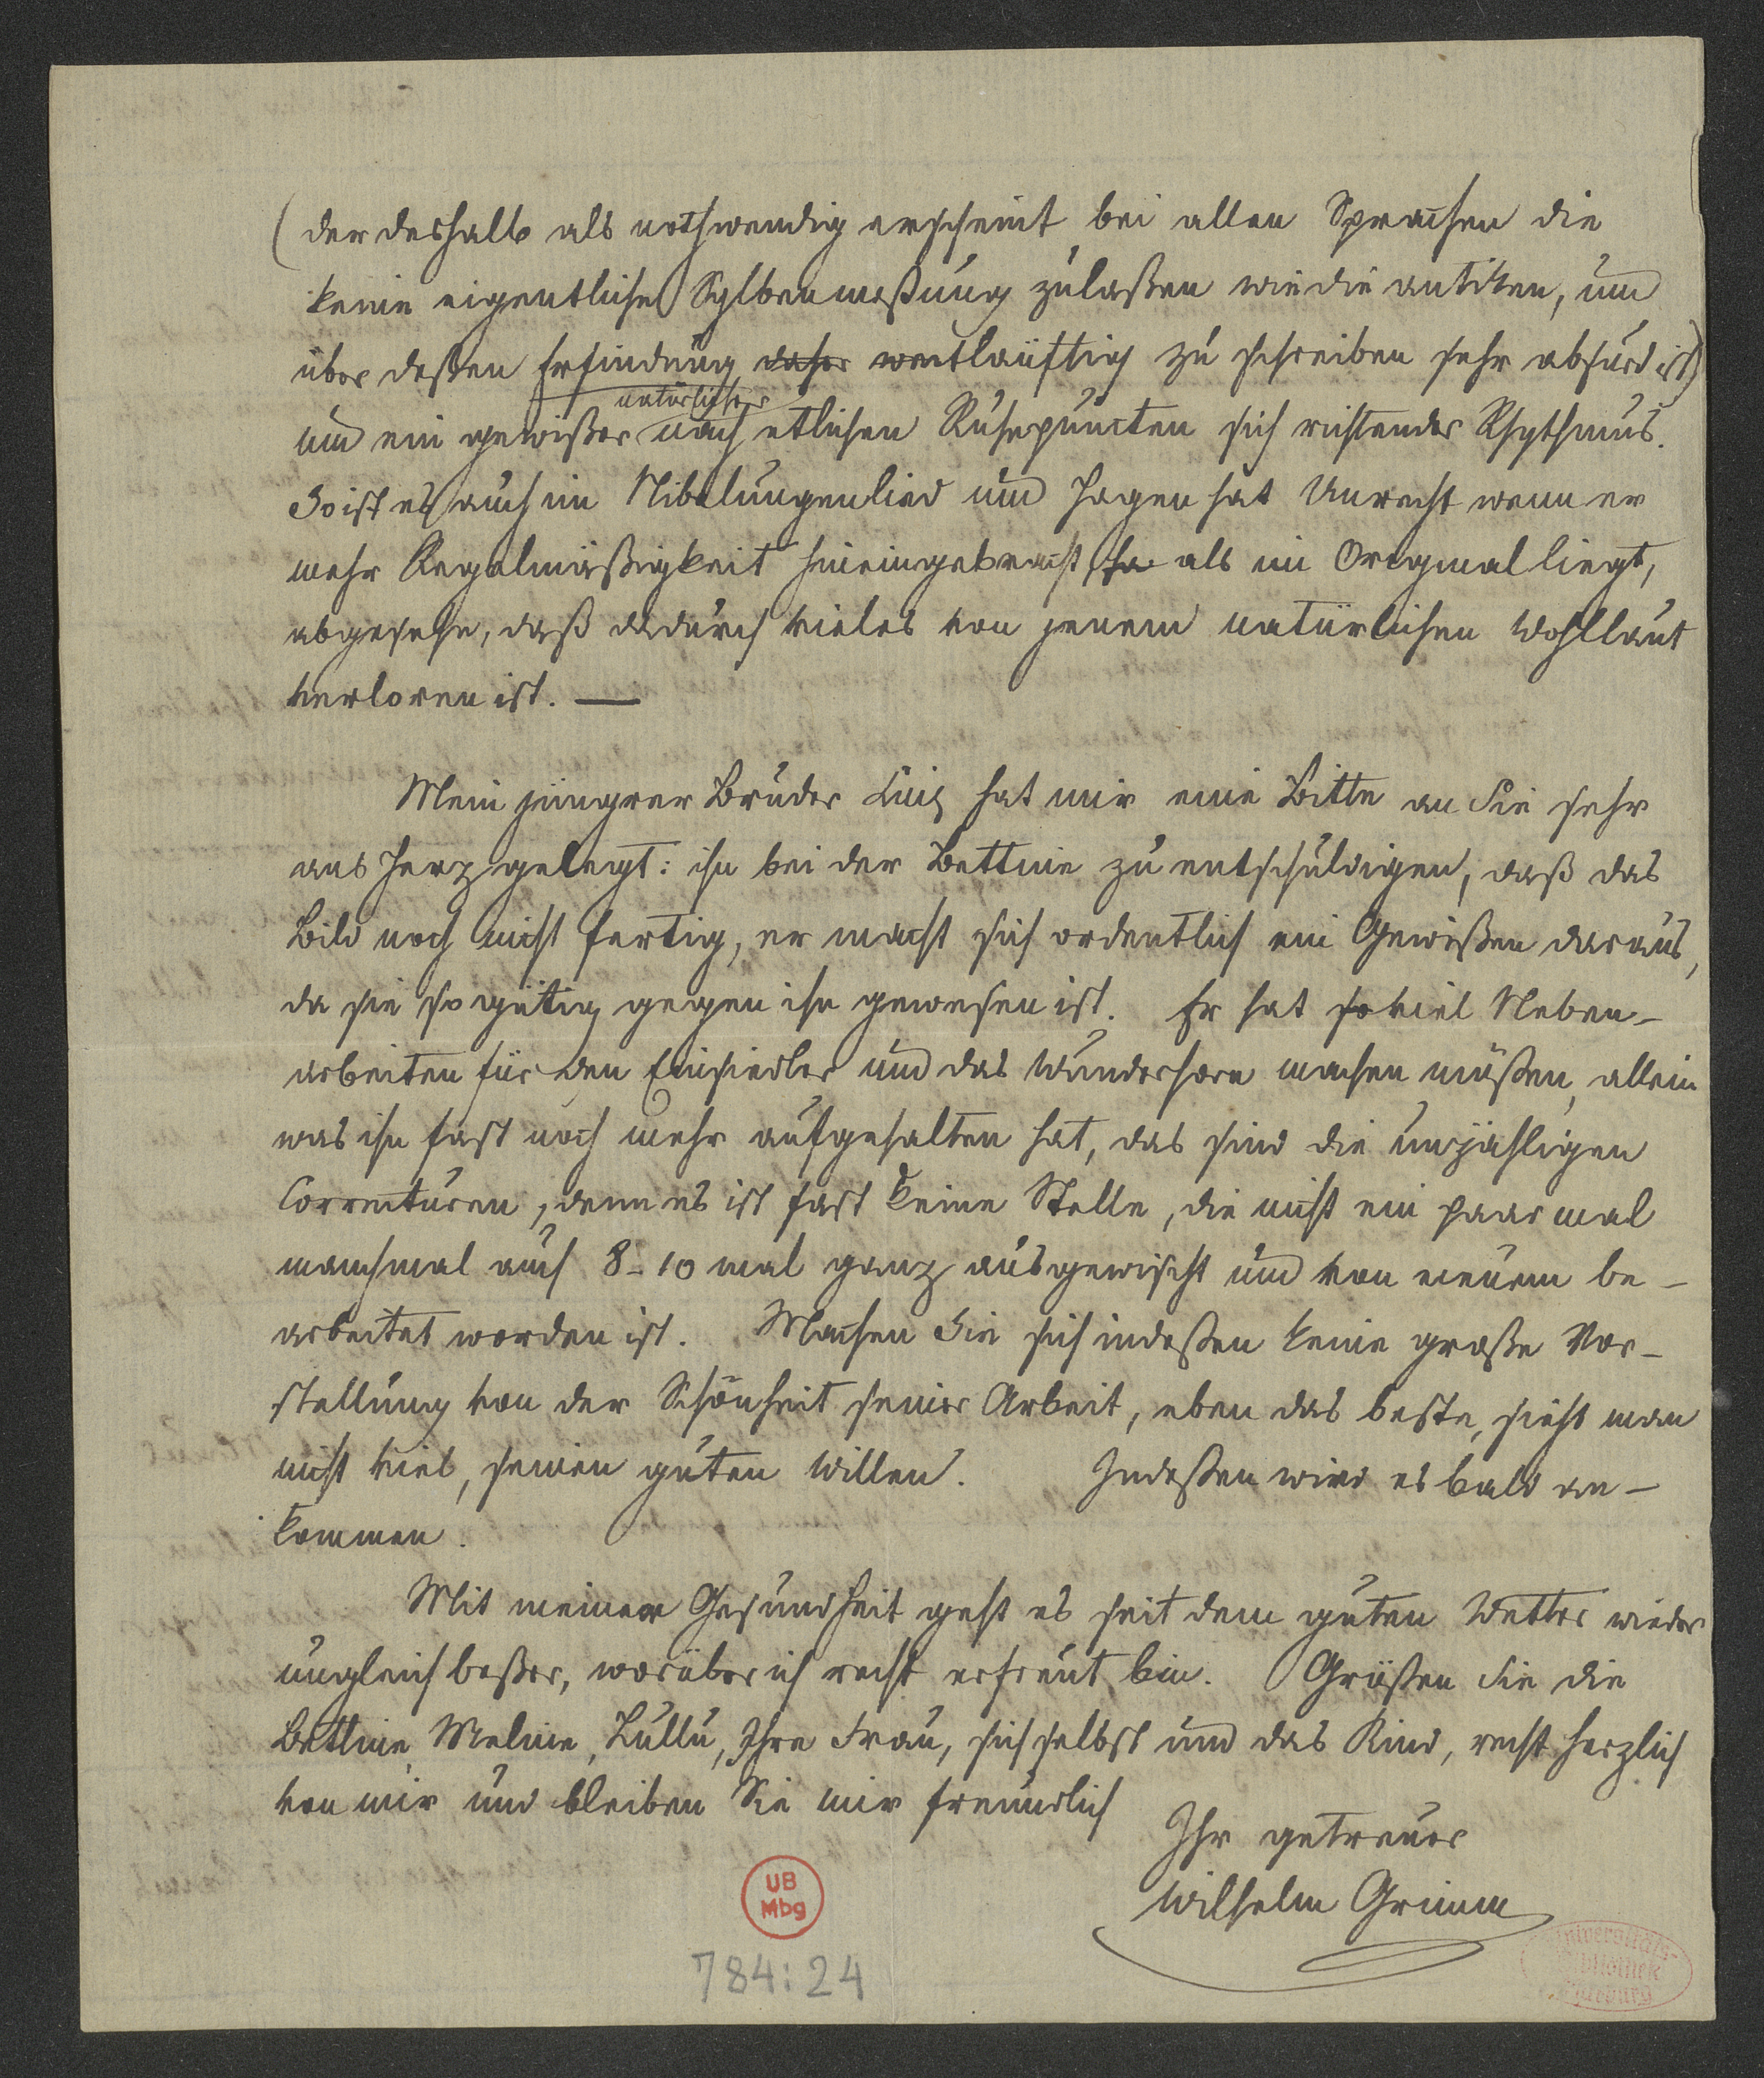 (der deshalb als nothwendig erscheint bei allen Sprachen die
keine eigentliche Sylbenmeßung zulaßen wie die antiken, und
über deßen Erfindung daher weitläuftig zu schreiben sehr absurd ist)
natürlicher
und ein gewißer nach etlichen Ruhepuncten sich richtender Rhythmus.
So ist es auch im Nibelungenlied und Hagen hat Unrecht wenn er
mehr Regelmäßigkeit hineingebracht, ha als im Original liegt,
abgesehn, daß dadurch vieles von jenem natürlichen Wohllaut
verloren ist. —
Mein jüngerer Bruder Luis hat mir eine Bitte an Sie sehr
ans Herz gelegt: ihn bei der Bettine zu entschuldigen, daß das
Bild noch nicht fertig, er macht sich ordentlich ein Gewißen daraus,
da sie so gütig gegen ihn gewesen ist. Er hat so viel Neben-
arbeiten für den Einsiedler und das Wunderhorn machen müßen, allein
was ihn fast noch mehr aufgehalten hat, das sind die unzähligen
Correcturen, denn es ist fast keine Stelle, die nicht ein paar mal
manchmal auch 8-10 mal ganz ausgewischt und von neuem be-
arbeitet worden ist. Machen Sie sich indeßen keine große Vor-
stellung von der Schönheit seiner Arbeit, eben das beste, sieht man
nicht viel, seinen guten Willen. Indeßen wird es bald an-
kommen.
Mit meiner Gesundheit geht es seit dem guten Wetter wieder
ungleich beßer, worüber ich recht erfreut bin. Grüßen Sie die
Bettine, Meline, Lullu, Ihre Frau, sich selbst und das Kind, recht herzlich
von mir und bleiben Sie mir freundlich
Ihr getreuer
Wilhelm Grimm
UB
Mbg
784:24
Universitäts-
Bibliothek
Marburg